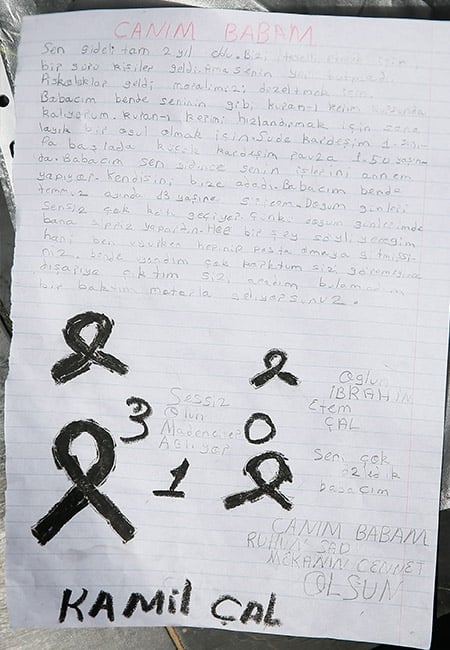 CANIM BABAM
Sen gideli tam 2 yıl oldu. Bizi teselli etmek için
bir sürü kişiler geldi. Ama senin yerin
Piskologlar geldi moralimizi düzeltmek için.
Babacım bende seninin gibi kuran-ı kerim kursunda
kalıyorum. kuran-ı kerimi hızlandırmak için sana
layık bir oğul olmak için. Sude kardeşim 1. sını-
fa başladı küçük kardeşim 1.50 yaşın-
da. Babacım sen gidince senin işlerini annem
yapıyor. Kendisini bize adadı. Babacım bende
temmuz ayında 13 yaşına girdim. Doğum günleri
sensiz çok kötü geçiyor. Çünkü doğum günlerimde
bana sürpriz yapardın. Hee bir şey söyliyeceğim
hani ben uyurken hepiniz pasta almaya gitmişsi-
niz. bende uyandım çok korktum sizi göremeyince
dışarıya çıktım sizi aradım bulamadım
bir baktım motorla geliyorsunuz.
Oğlun
İBRAHİM
Etem
ÇAL
Sessiz
Olun
Madenciler
Ağlıyor
3 0 1
Seni çok
özledik
babacım
CANIM BABAM
RUHUN ŞAD
MEKANIN CENNET
OLSUN
KAMİL ÇAL